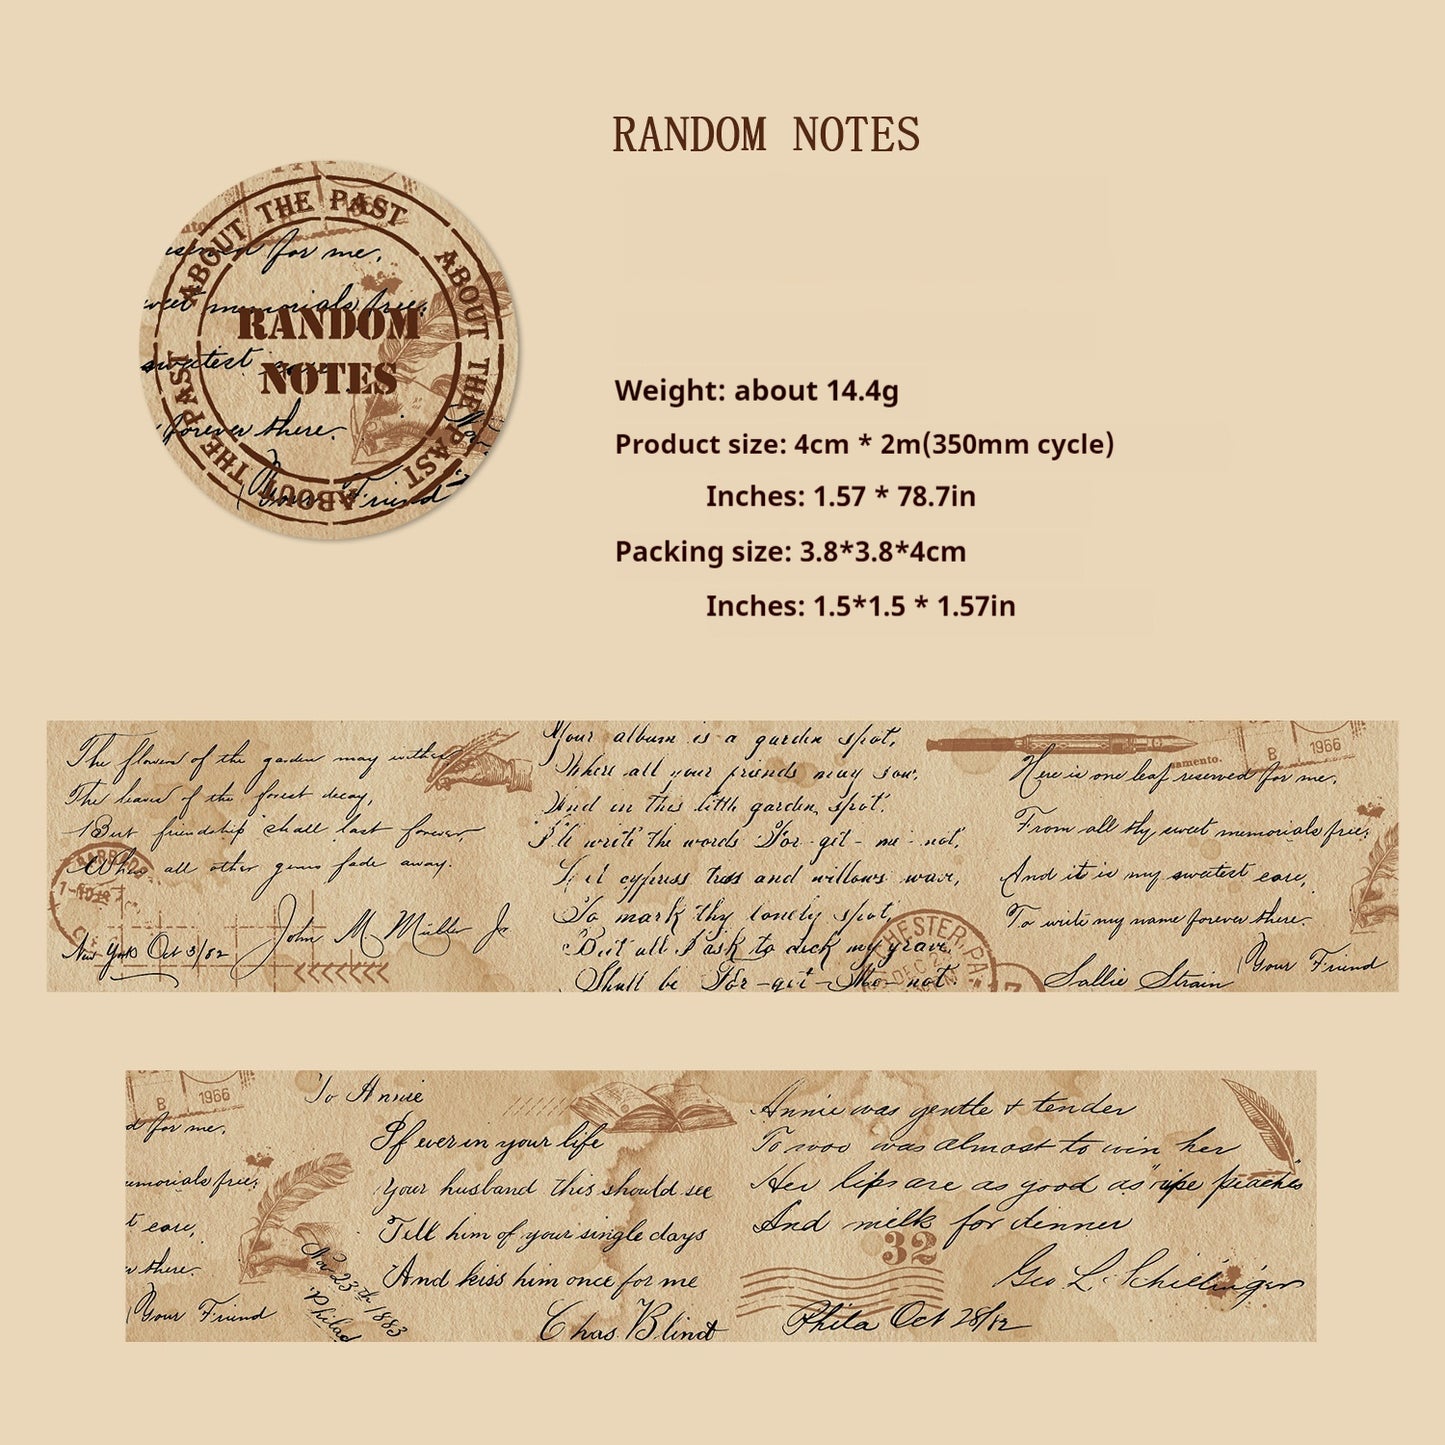 RANDOM NOTES
ABOUT THE PAST ABOUT THE PAST ABOUT THE PAST
for me,
sweet memorials free,
RANDOM
sweetest
NOTES
forever there.
Your Friend
Weight: about 14.4g
Product size: 4cm * 2m(350mm cycle)
Inches: 1.57 * 78.7in
Packing size: 3.8*3.8*4cm
Inches: 1.5*1.5 * 1.57in
The flowers of the garden may wither
The leaves of the forest decay,
But friendship shall last forever
When all other gems fade away.
John M Muller Jr
New York Oct 3/82
Your album is a garden spot,
Where all your friends may sow,
And in this little garden spot.
I'll write the words For-get-me-not,
Let cypress trees and willows wave,
To mark thy lonely spot,
But all I ask to deck my grave,
Shall be For-get-Me-not.
CHESTER, PA.
DEC
B 1966
Here is one leaf reserved for me,
From all thy sweet memorials free;
And it is my sweetest care,
To write my name forever there.
Your Friend
Sallie Strain
B 1966
d for me,
emorials free;
t care,
there.
Your Friend
Nov 23th 1883
Philad
To Annie
If ever in your life
Your husband this should see
Tell him of your single days
And kiss him once for me
Chas. Blind
Annie was gentle & tender
To woo was almost to win her
Her lips are as good as "ripe peaches
And milk for dinner
32
Geo L. Schillinger
Phila Oct 28/82